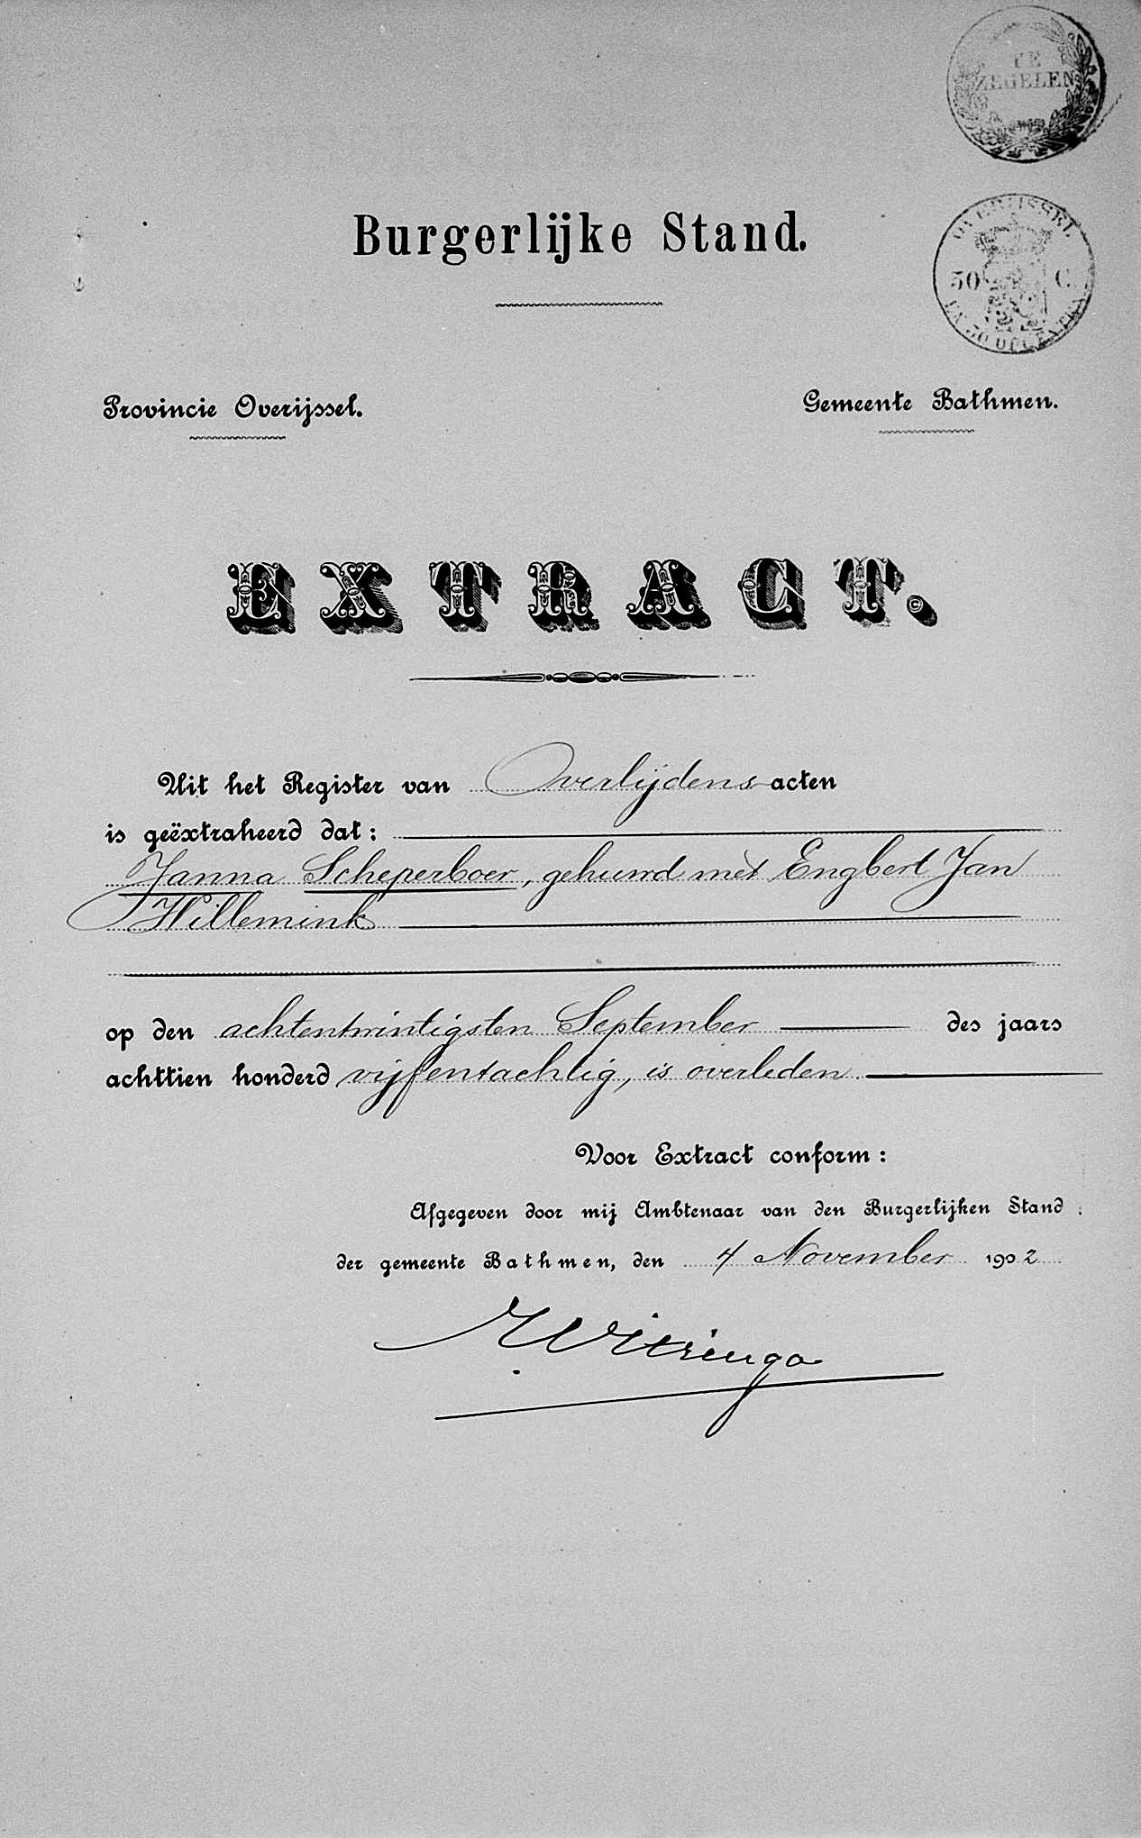 TE
ZEGELEN
Burgerlijke Stand.
OVERIJSSEL
50 C.
Provincie Overijssel.
Gemeente Bathmen.
EXTRACT.
Uit het Register van Overlijdens acten
is geëxtraheerd dat:
Janna Scheperboer, gehuwd met Engbert Jan
Willemink
op den achtentwintigsten September des jaars
achttien honderd vijfentachtig, is overleden
Voor Extract conform:
Afgegeven door mij Ambtenaar van den Burgerlijken Stand
der gemeente Bathmen, den 4 November 1902